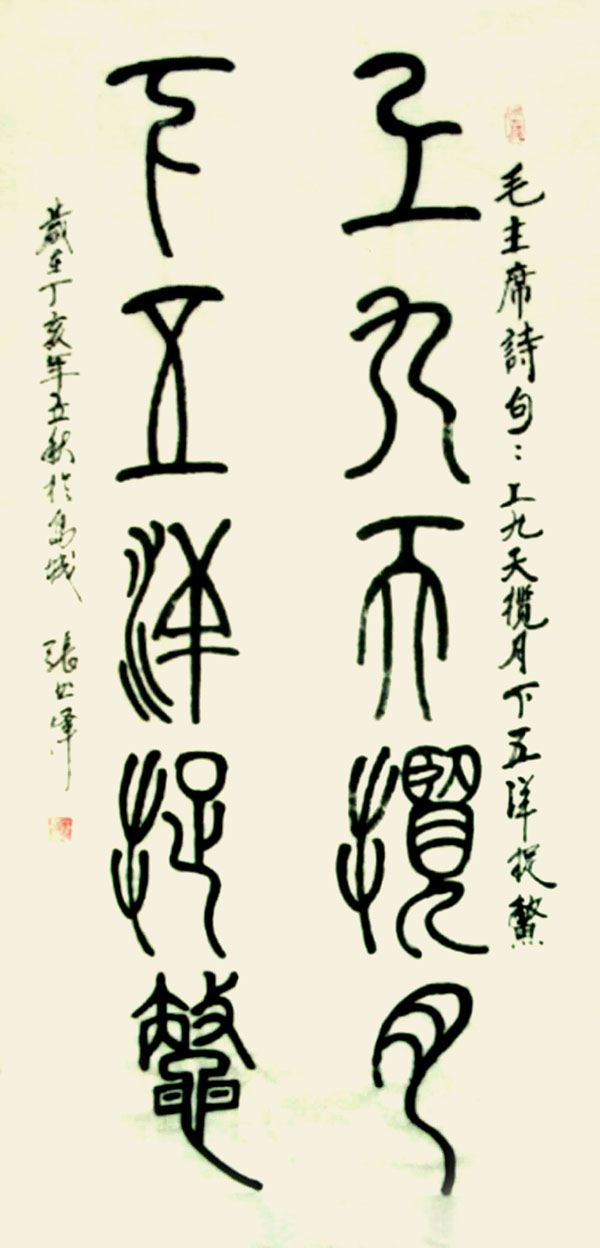 毛主席詩句：上九天攬月下五洋捉鱉
上九天攬月
下五洋捉鼈
歲在丁亥年五秋於島城 張